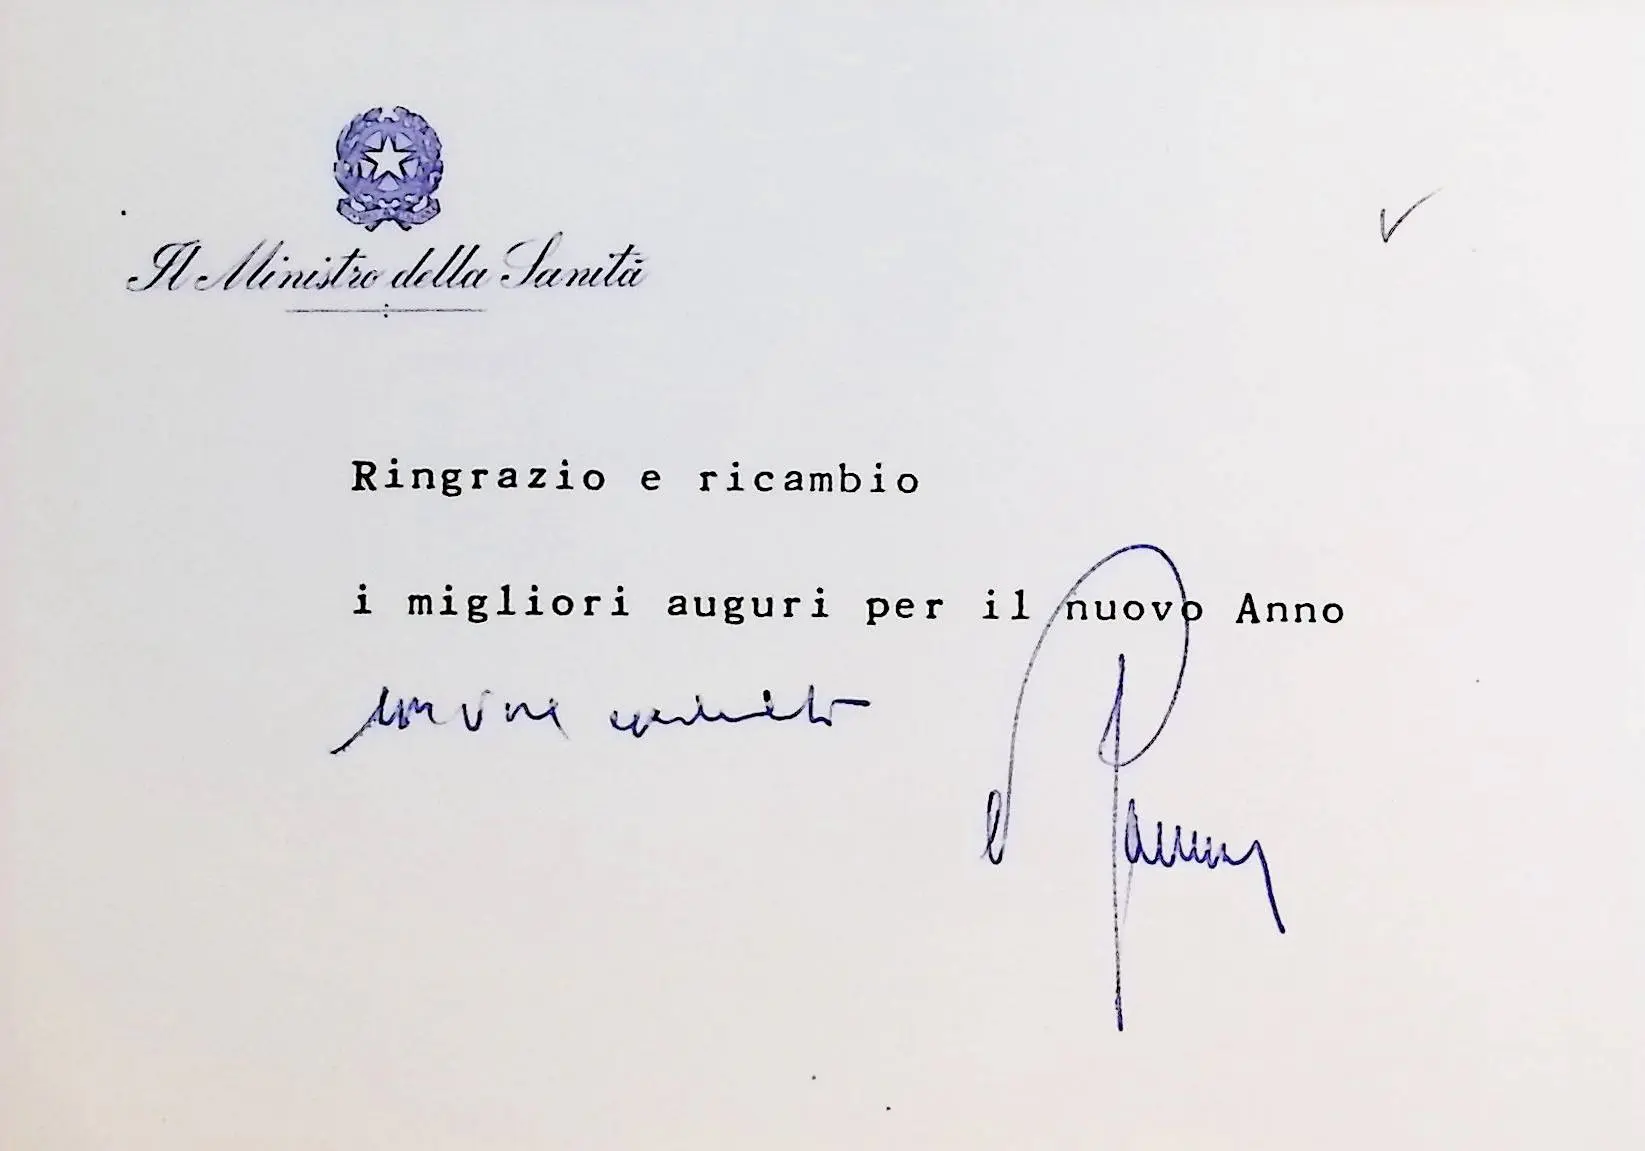 Il Ministro della Sanità
Ringrazio e ricambio
i migliori auguri per il nuovo Anno
con viva cordialità